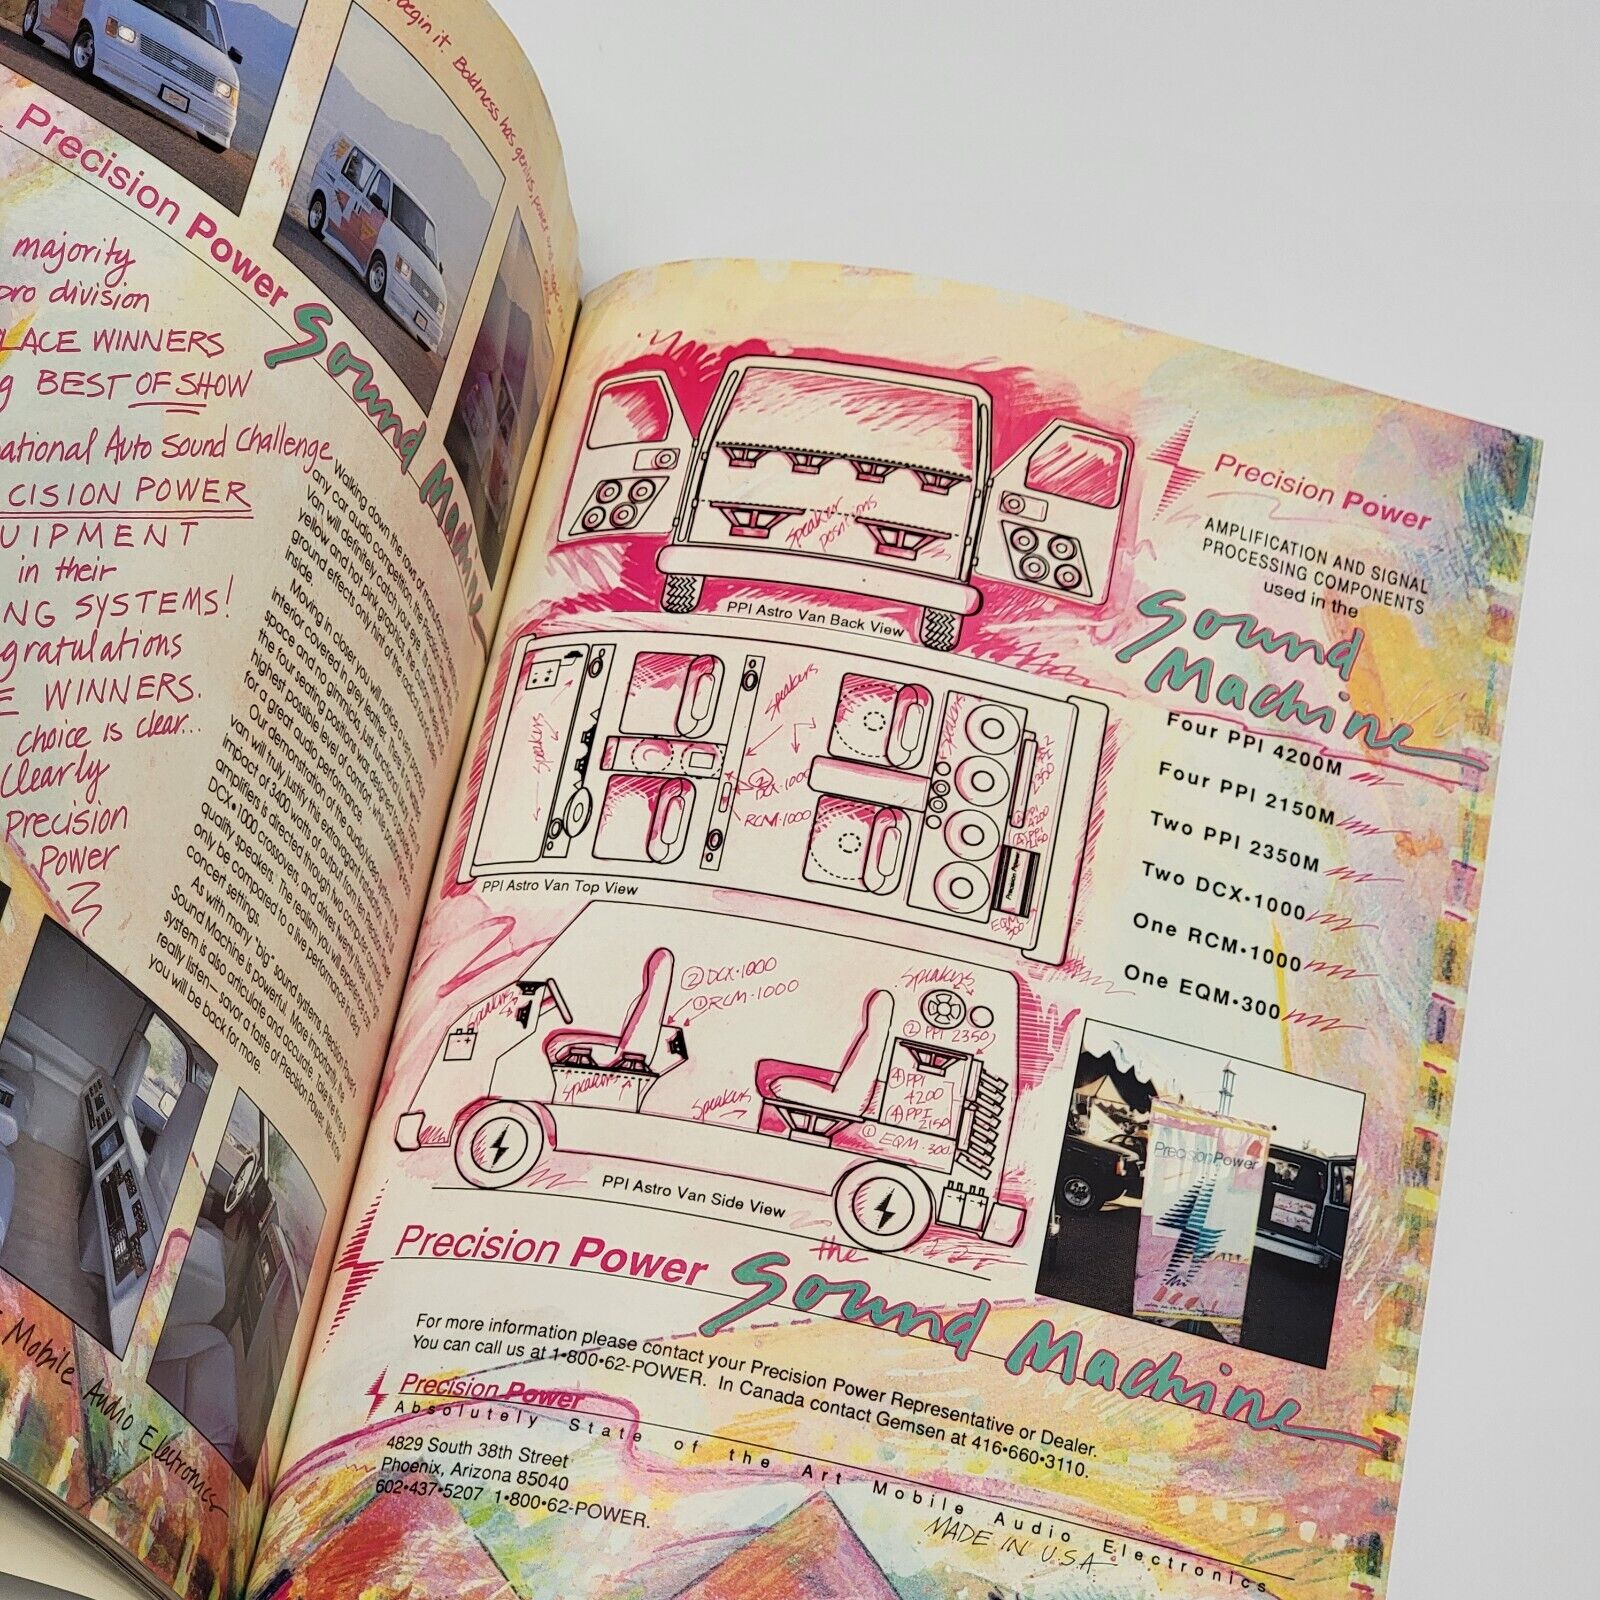 begin it. Boldness has genius, power and magic
Precision Power
Sound Machine
majority
pro division
PLACE WINNERS
BEST OF SHOW
Auto Sound Challenge
CISION POWER
UIPMENT
in their
NG SYSTEMS!
gratulations
WINNERS.
choice is clear...
Clearly
Precision
Power
Walking down the rows of
any car audio competition, the Precision Power
Van will definitely catch your eye. Its custom
yellow and hot pink graphics, the
ground effects only hint of the radical sound system
inside.
Moving in closer you will notice a very plush
interior covered in grey leather. There is no wasted
space and no gimmicks, just functional luxury. Each of
the four seating positions was designed to provide the
highest possible level of comfort, while positioning
for a great audio performance.
Our demonstration of the audio/video system in the
van will truly justify this extravagant installation. The full
impact of 3400 watts of output from ten Precision Power
amplifiers is directed through two computer controlled
DCX•1000 crossovers, and drives twenty three ultra high
quality speakers. The realism you will experience can
only be compared to a live performance in the best
concert settings.
As with many "big" sound systems, Precision Power's
Sound Machine is powerful. More importantly, the
system is also articulate and accurate. Take the time to
really listen— savor a taste of Precision Power. We know
you will be back for more.
Mobile Audio Electronics
Speaker
positions
PPI Astro Van Back View
Precision Power
AMPLIFICATION AND SIGNAL
PROCESSING COMPONENTS
used in the
Sound
Machine
Four PPI 4200M
Four PPI 2150M
Two PPI 2350M
Two DCX•1000
One RCM•1000
One EQM•300
Speakers
Speakers
Speakers
② DCX•1000
RCM•1000
2350
④ PPI
4200
④ PPI
2150
Precision Power
EQM
300
PPI Astro Van Top View
Speakers
② DCX•1000
① RCM•1000
Speakers
② PPI 2350
④ PPI
4200
④ PPI
2150
① EQM•300
Speakers
Speakers
PPI Astro Van Side View
Precision Power
Precision Power
the
Sound Machine
For more information please contact your Precision Power Representative or Dealer.
You can call us at 1•800•62-POWER. In Canada contact Gemsen at 416•660•3110.
Precision Power
Absolutely State of the Art Mobile Audio Electronics
4829 South 38th Street
Phoenix, Arizona 85040
602•437•5207 1•800•62-POWER.
MADE IN U.S.A.